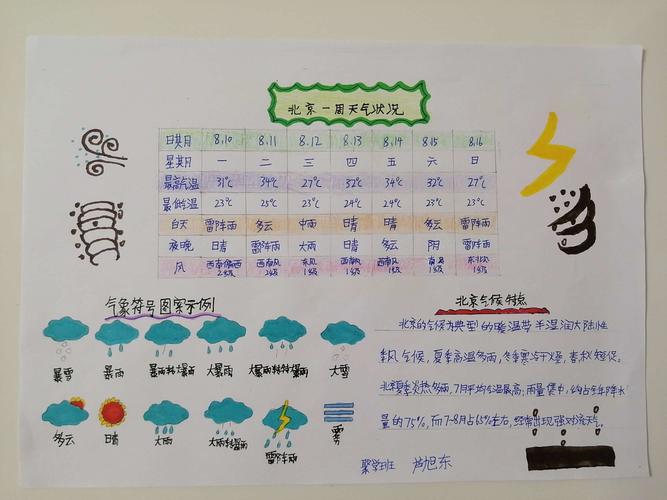 北京一周天气状况
日期 8.10 8.11 8.12 8.13 8.14 8.15 8.16
星期 一 二 三 四 五 六 日
最高气温 31℃ 34℃ 27℃ 32℃ 34℃ 32℃ 27℃
最低气温 23℃ 25℃ 23℃ 24℃ 24℃ 23℃ 23℃
白天 雷阵雨 多云 中雨 晴 晴 多云 雷阵雨
夜晚 晴 雷阵雨 大雨 晴 多云 阴 雷阵雨
风 西南偏西2级 西南风2级 东风1级 西南风1级 西南风1级 南风1级 东北风1级
气象符号图案示例
暴雪 暴雨 暴雨转大暴雨 大暴雨 大暴雨转特大暴雨 大雪
多云 晴 大雨 大雨转暴雨 雷阵雨 雾
北京气候特点
北京的气候为典型的暖温带半湿润大陆性
季风气候，夏季高温多雨，冬季寒冷干燥，春秋短促。
北京夏季炎热多雨，7月平均气温最高，雨量集中，约占全年降水
量的75%，而7-8月占65%左右，经常出现强对流天气。
聚学班 芦旭东